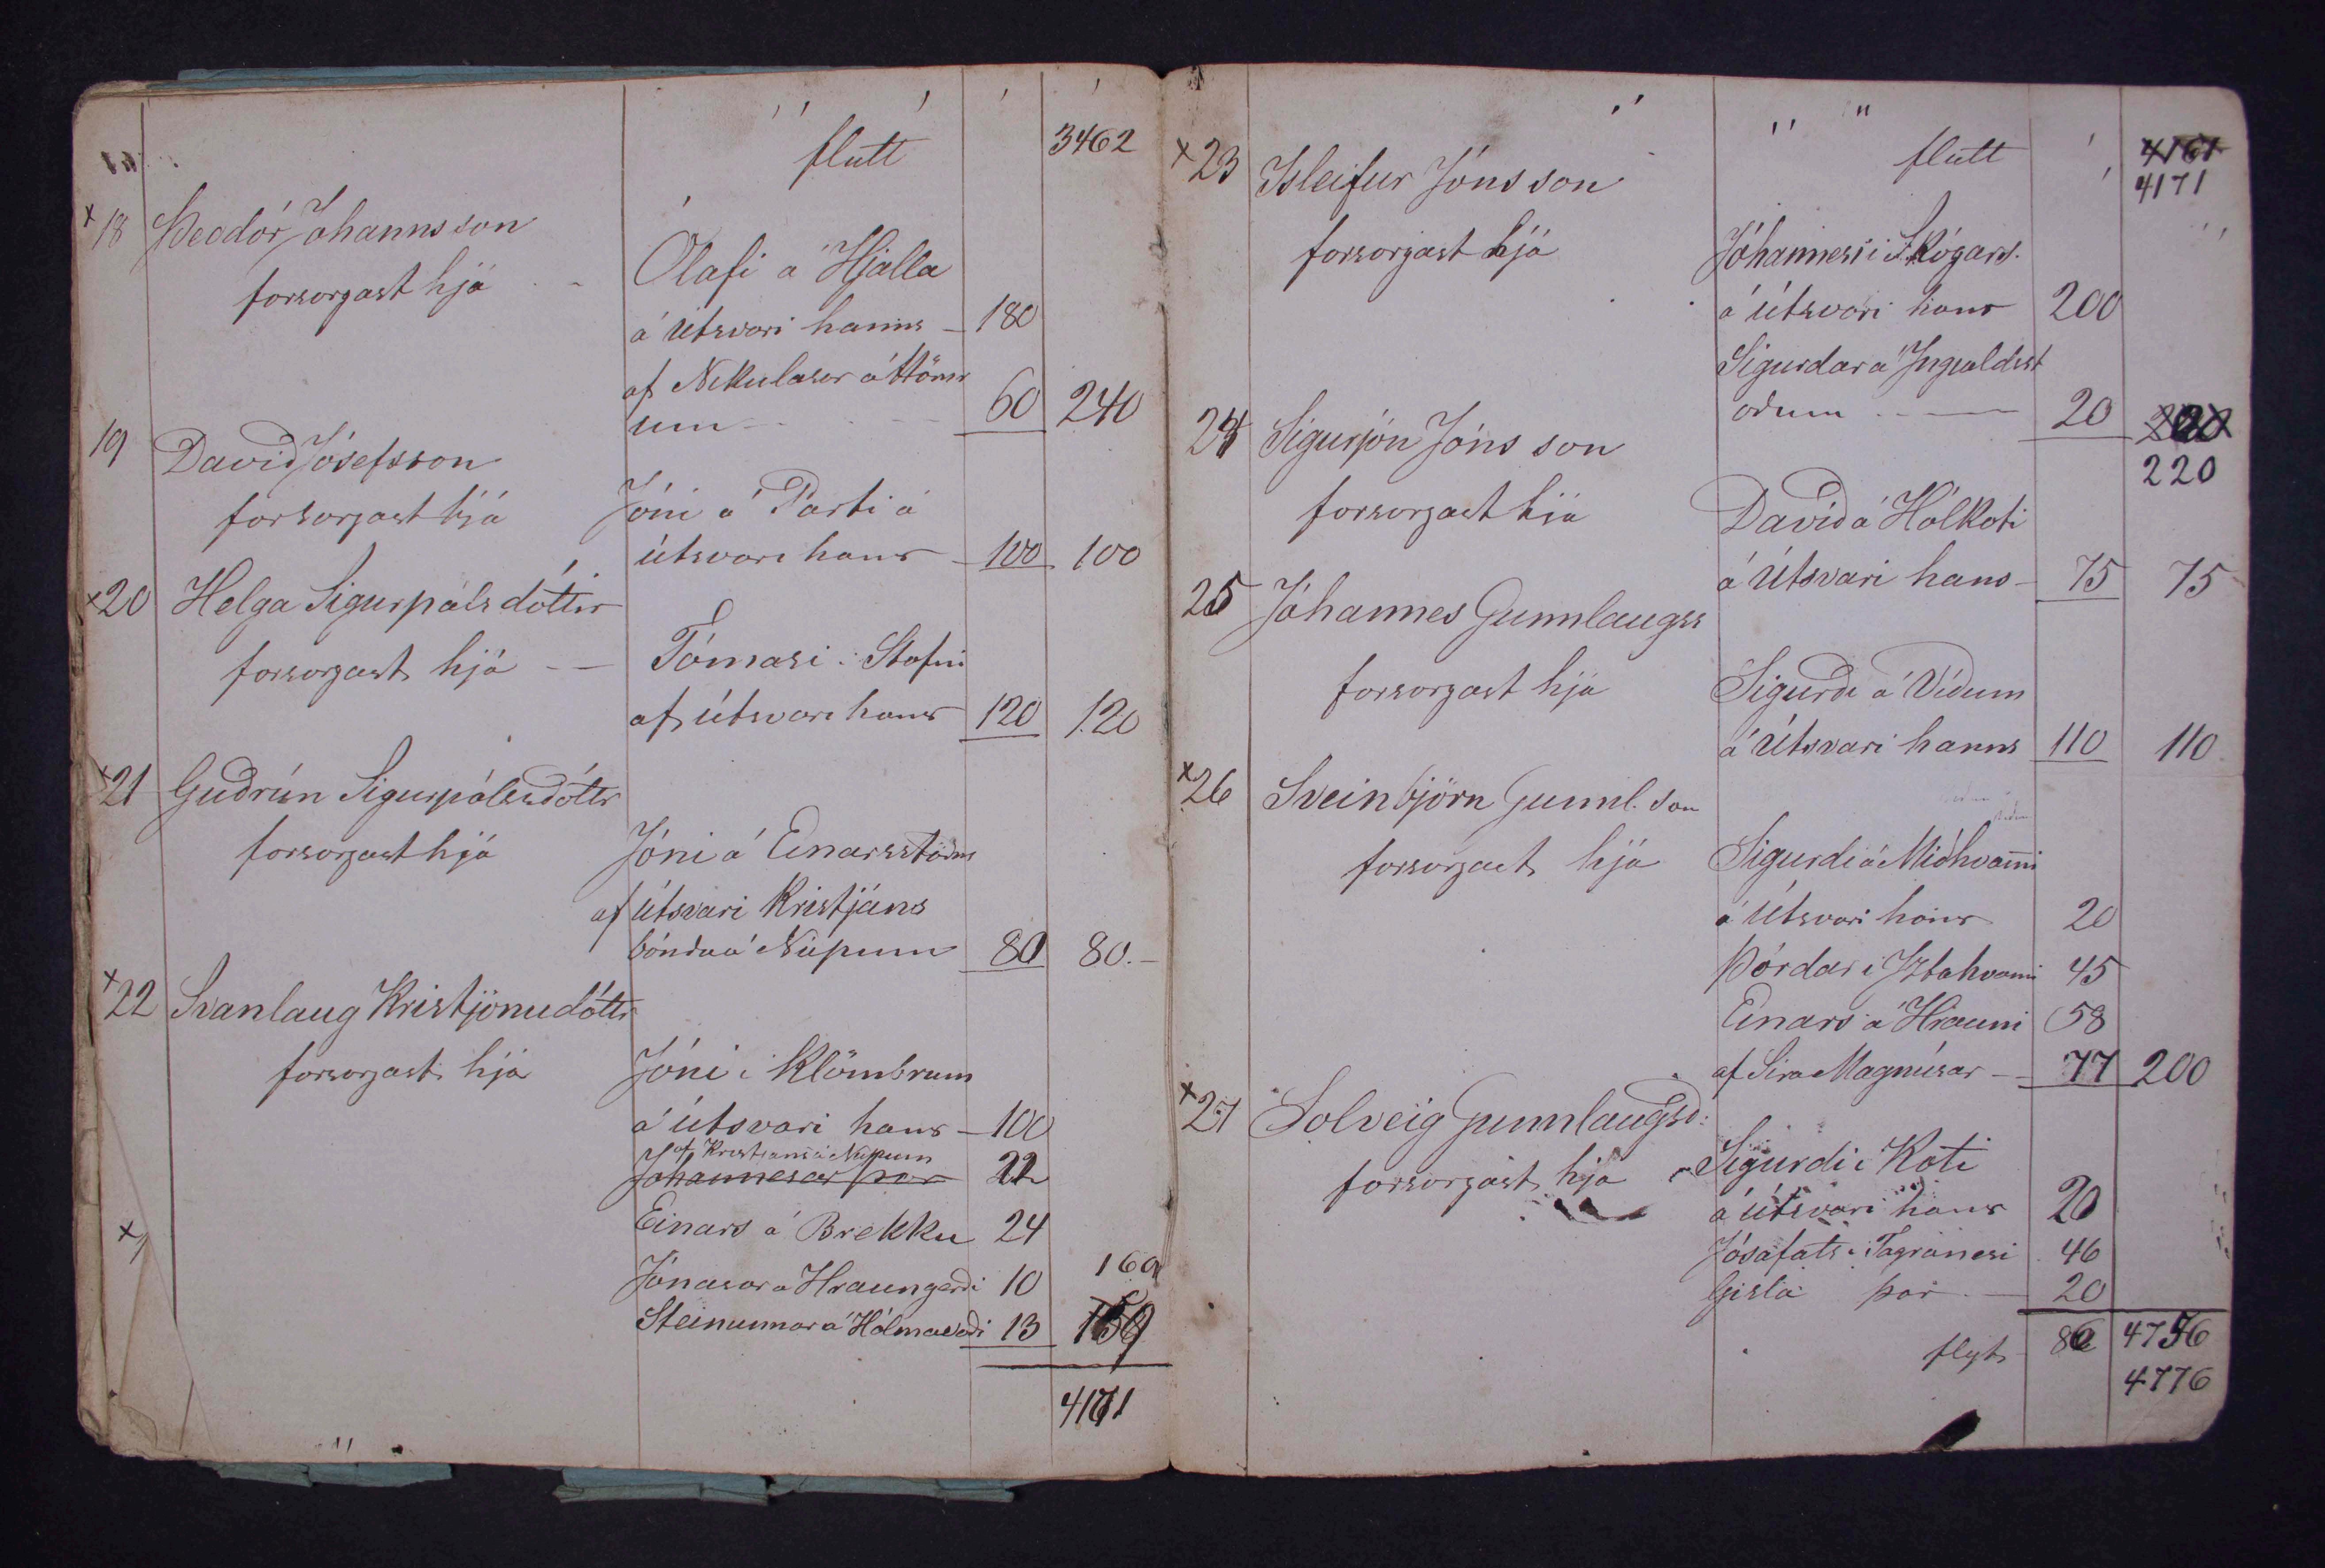 flutt 3462
×18 Þeodór Jóhannsson
forsorgast hjá - Ólafi á Hjalla
á útsvari hanns - 180
af Nikulaser á
um - 60 240
19 Davíð Jósefsson
forsorgast hjá Jóni á Parti á
útsvari hans - 100 100
×20 Helga Sigurpálsdóttir
forsorgast hjá - Tómasi í Stafni
af útsvari hans 120 120
×21 Guðrún Sigurpálsdóttr
forsorgast hjá Jóni á Einarsstöðm
af útsvari Kristjáns
bónda á Núpum 80 80.-
×22 Svanlaug Kristjönudóttr
forsorgast hjá Jóni í Klömbrum
á útsvari hans - 100
af Kristjáni á Núpum
Jóhannesar þar 22
Einars á Brekku 24
Jónasar á Hraungerði 10 169
Steinunnar á Hólmavaði 13 159
4171
flutt 4161
4171
×23 Isleifur Jónsson
forsorgast hjá Jóhannesi í Skógard.
á útsvari hans 200
Sigurdar á Ingvaldst
oðum - 20 200
220
24 Sigurjón Jónsson
forsorgast hjá Davíð á Hólkoti
á Útsvari hans - 75 75
25 Jóhannes Gunnlaugss
forsorgast hjá Sigurdi á Vídum
á Útsvari hanns 110 110
×26 Sveinbjörn Gunnl.son
forsorgast hjá Sigurdi á Miðhvammi
á Útsvari hans 20
Þórdar í Iztahvami 45
Einars á Hrauni 58
af Sira Magnúsar - 77 200
×27 Solveig Gunnlaugsd:
forsorgast hjá Sigurdi í Koti
á útsvari hans 20
Jósafats í Fagranesi 46
Gisla þar - 20
flyt 86 4756
4776